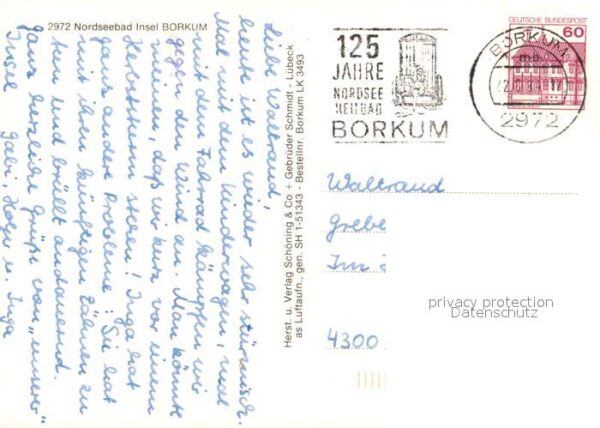 2972 Nordseebad Insel BORKUM
Liebe Waltraud,
heute ist es wieder sehr stürmisch.
Mal mit dem Kinderwagen, mal
mit dem Fahrrad kämpfen wir
gegen den Wind an. Man könnte
meinen, daß wir kurz vor einem
Herbststurm stehen! Inga hat
ganz andere Probleme! Sie hat
mit ihren künftigen Zähnen zu
tun und brüllt andauernd.
Ganz herzliche Grüße von "unserer"
Insel Gabi, Holger u. Inga
Herst. u. Verlag Schöning & Co + Gebrüder Schmidt - Lübeck
as Luftaufn., gen. SH 1-51343 - Bestellnr. Borkum LK 3493
125
JAHRE
NORDSEE
HEILBAD
BORKUM
BORKUM
mb
2972
DEUTSCHE BUNDESPOST
60
Waltraud
Grebe
Im
4300
privacy protection
Datenschutz